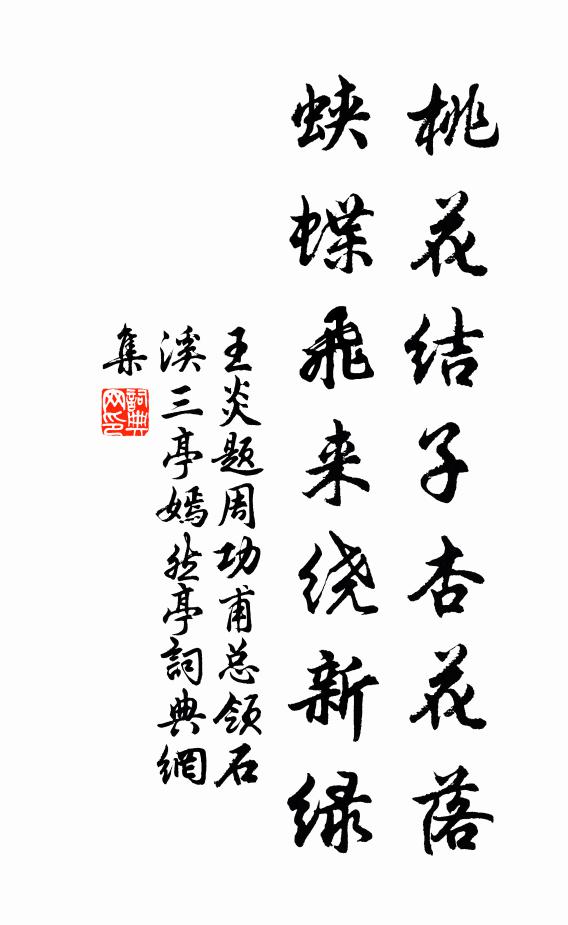 桃花结子杏花落
蛱蝶飞来绕新绿
王炎题周功甫总领石
溪三亭嫣然亭詞典網
集
詞典
网印